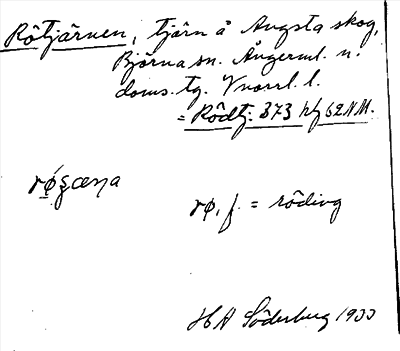 Rötjärnen, tjärn å Angsta skog,
Björna sn. Ångerml. n.
doms. tg. Vnorrl. l.
= Rödtj. 373 hf 62 N M.
røʹʂæṇa
rø, f. = röding
H A Söderberg 1933